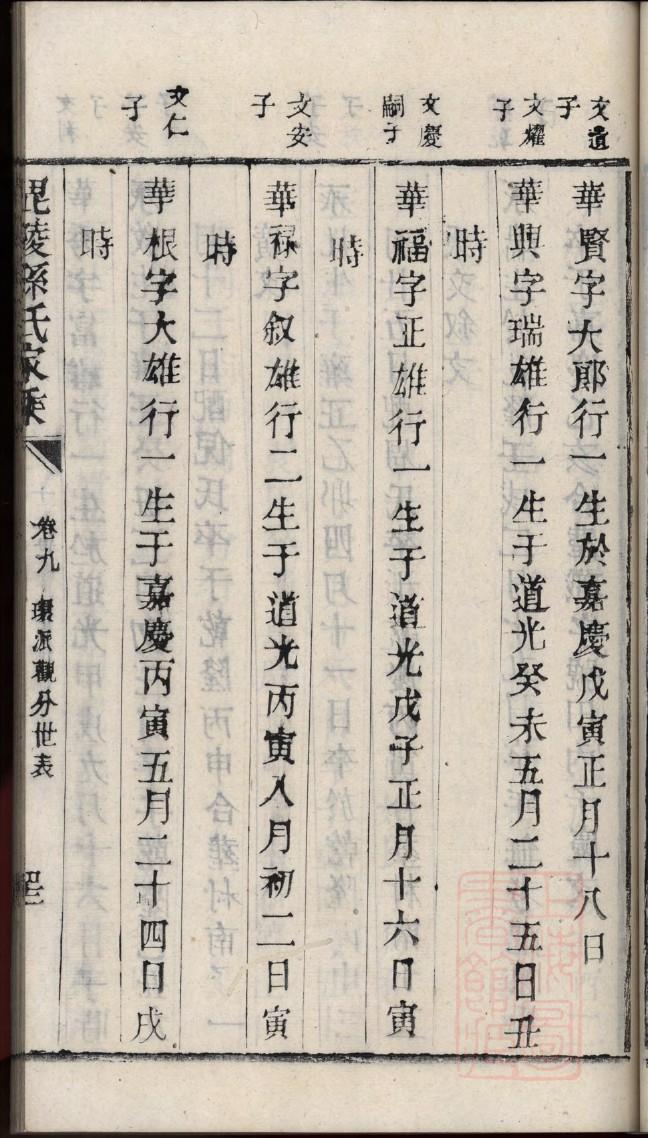 文遺子
華賢字大郎行一生於嘉慶戊寅正月十八日
文耀子
華興字瑞雄行一生于道光癸未五月二十五日丑
時
文慶嗣子
華福字正雄行一生于道光戊子正月十六日寅
時
文安子
華祿字叙雄行二生于道光丙寅八月初二日寅
時
文仁子
華根字大雄行一生于嘉慶丙寅五月二十四日戌
時
毘陵孫氏家乘
卷九 環派觀分世表